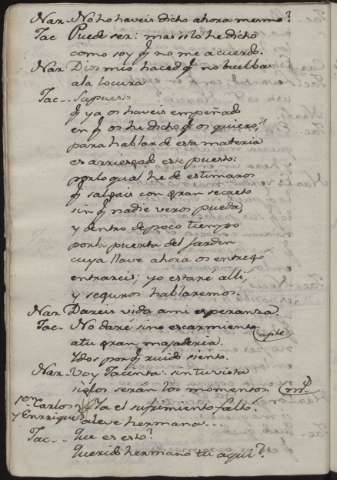 Nar. No ho haveis dicho ahora mesmo?
Jac. Puede ser: mas si lo he dicho
como soy q̃ no me acuerdo.
Nar. Dios mio haced q̃ no buelba
a la locura
Jac. Supuesto
q̃ ya os haveis empeñado
en q̃ os he dicho q̃ os quiero,
para hablar de esta materia
es arriesgado este puesto:
por lo qual he de estimaros
q̃ salgais con gran secreto
sin q̃ nadie veros pueda,
y dentro de poco tiempo
por la puerta del Jardin
cuya llave ahora os entrego
entrareis; yo estaré alli,
y seguros hablaremos.
Nar. Dareis vida a mi esperanza.
Jac. No dare sino escarmiento
a tu gran majaderia.
Idos porq̃ ruido siento.
Nar. Voy Jacinta: sin tu vista
siglos seran los momentos.
Carlos Ya el sufrimiento falto.
y Enrrique aleve hermana...
Jac. Que es esto?
Querido hermano tu aqui?